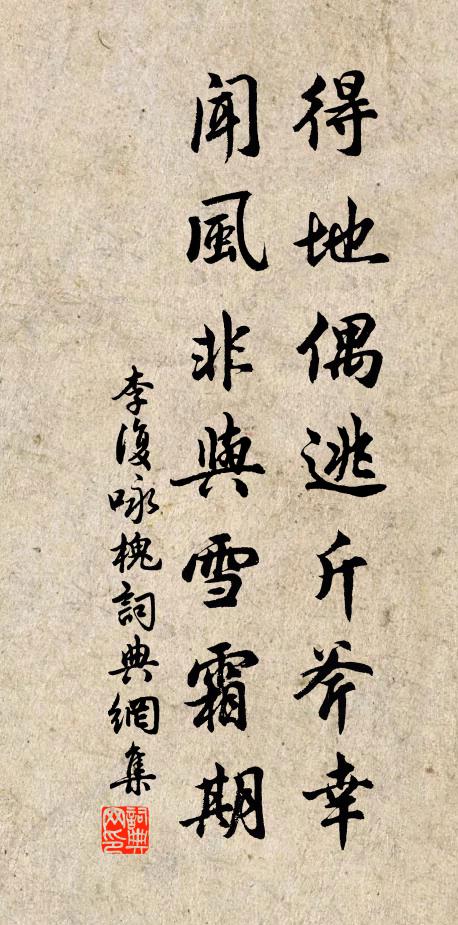 得地偶逃斤斧幸
闻風非與雪霜期
李復咏槐詞典網集
詞典网印